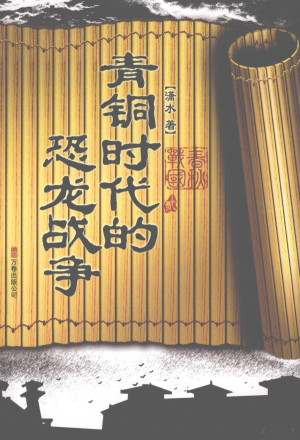 青铜时代的
恐龙战争
【潇水 著】
春秋
戰國
万卷出版公司